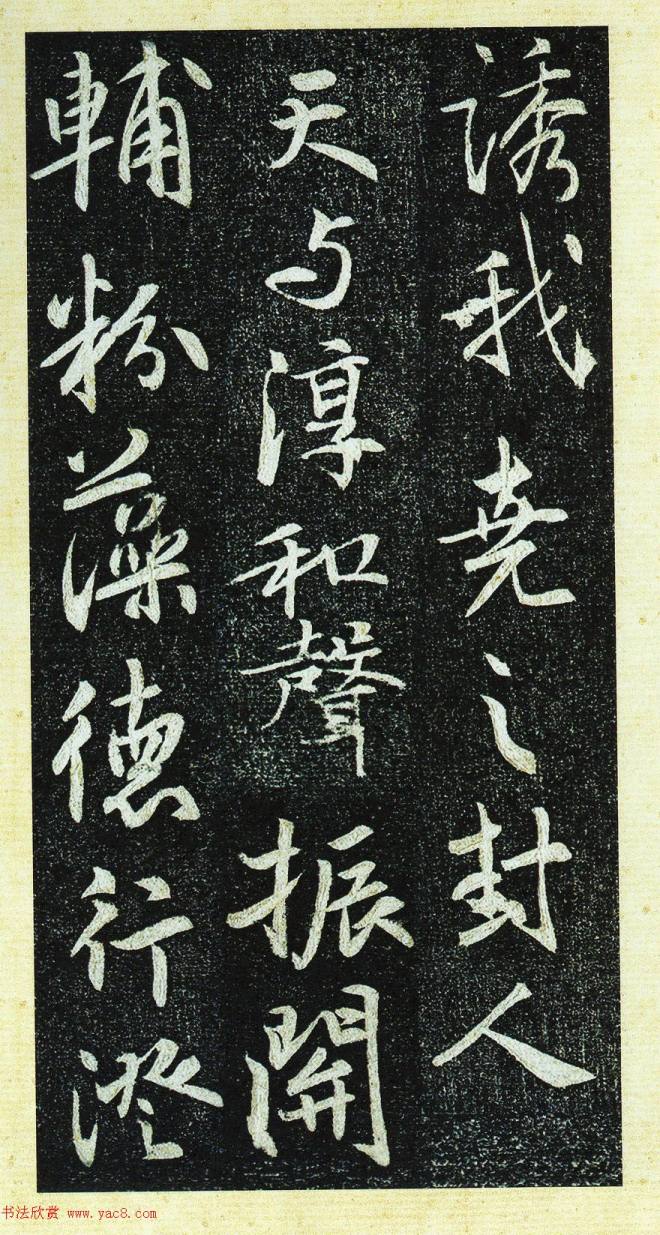 誘我尭之封人
天与淳和聲振開
輔粉藻德行澄
书法欣赏 www.yac8.com